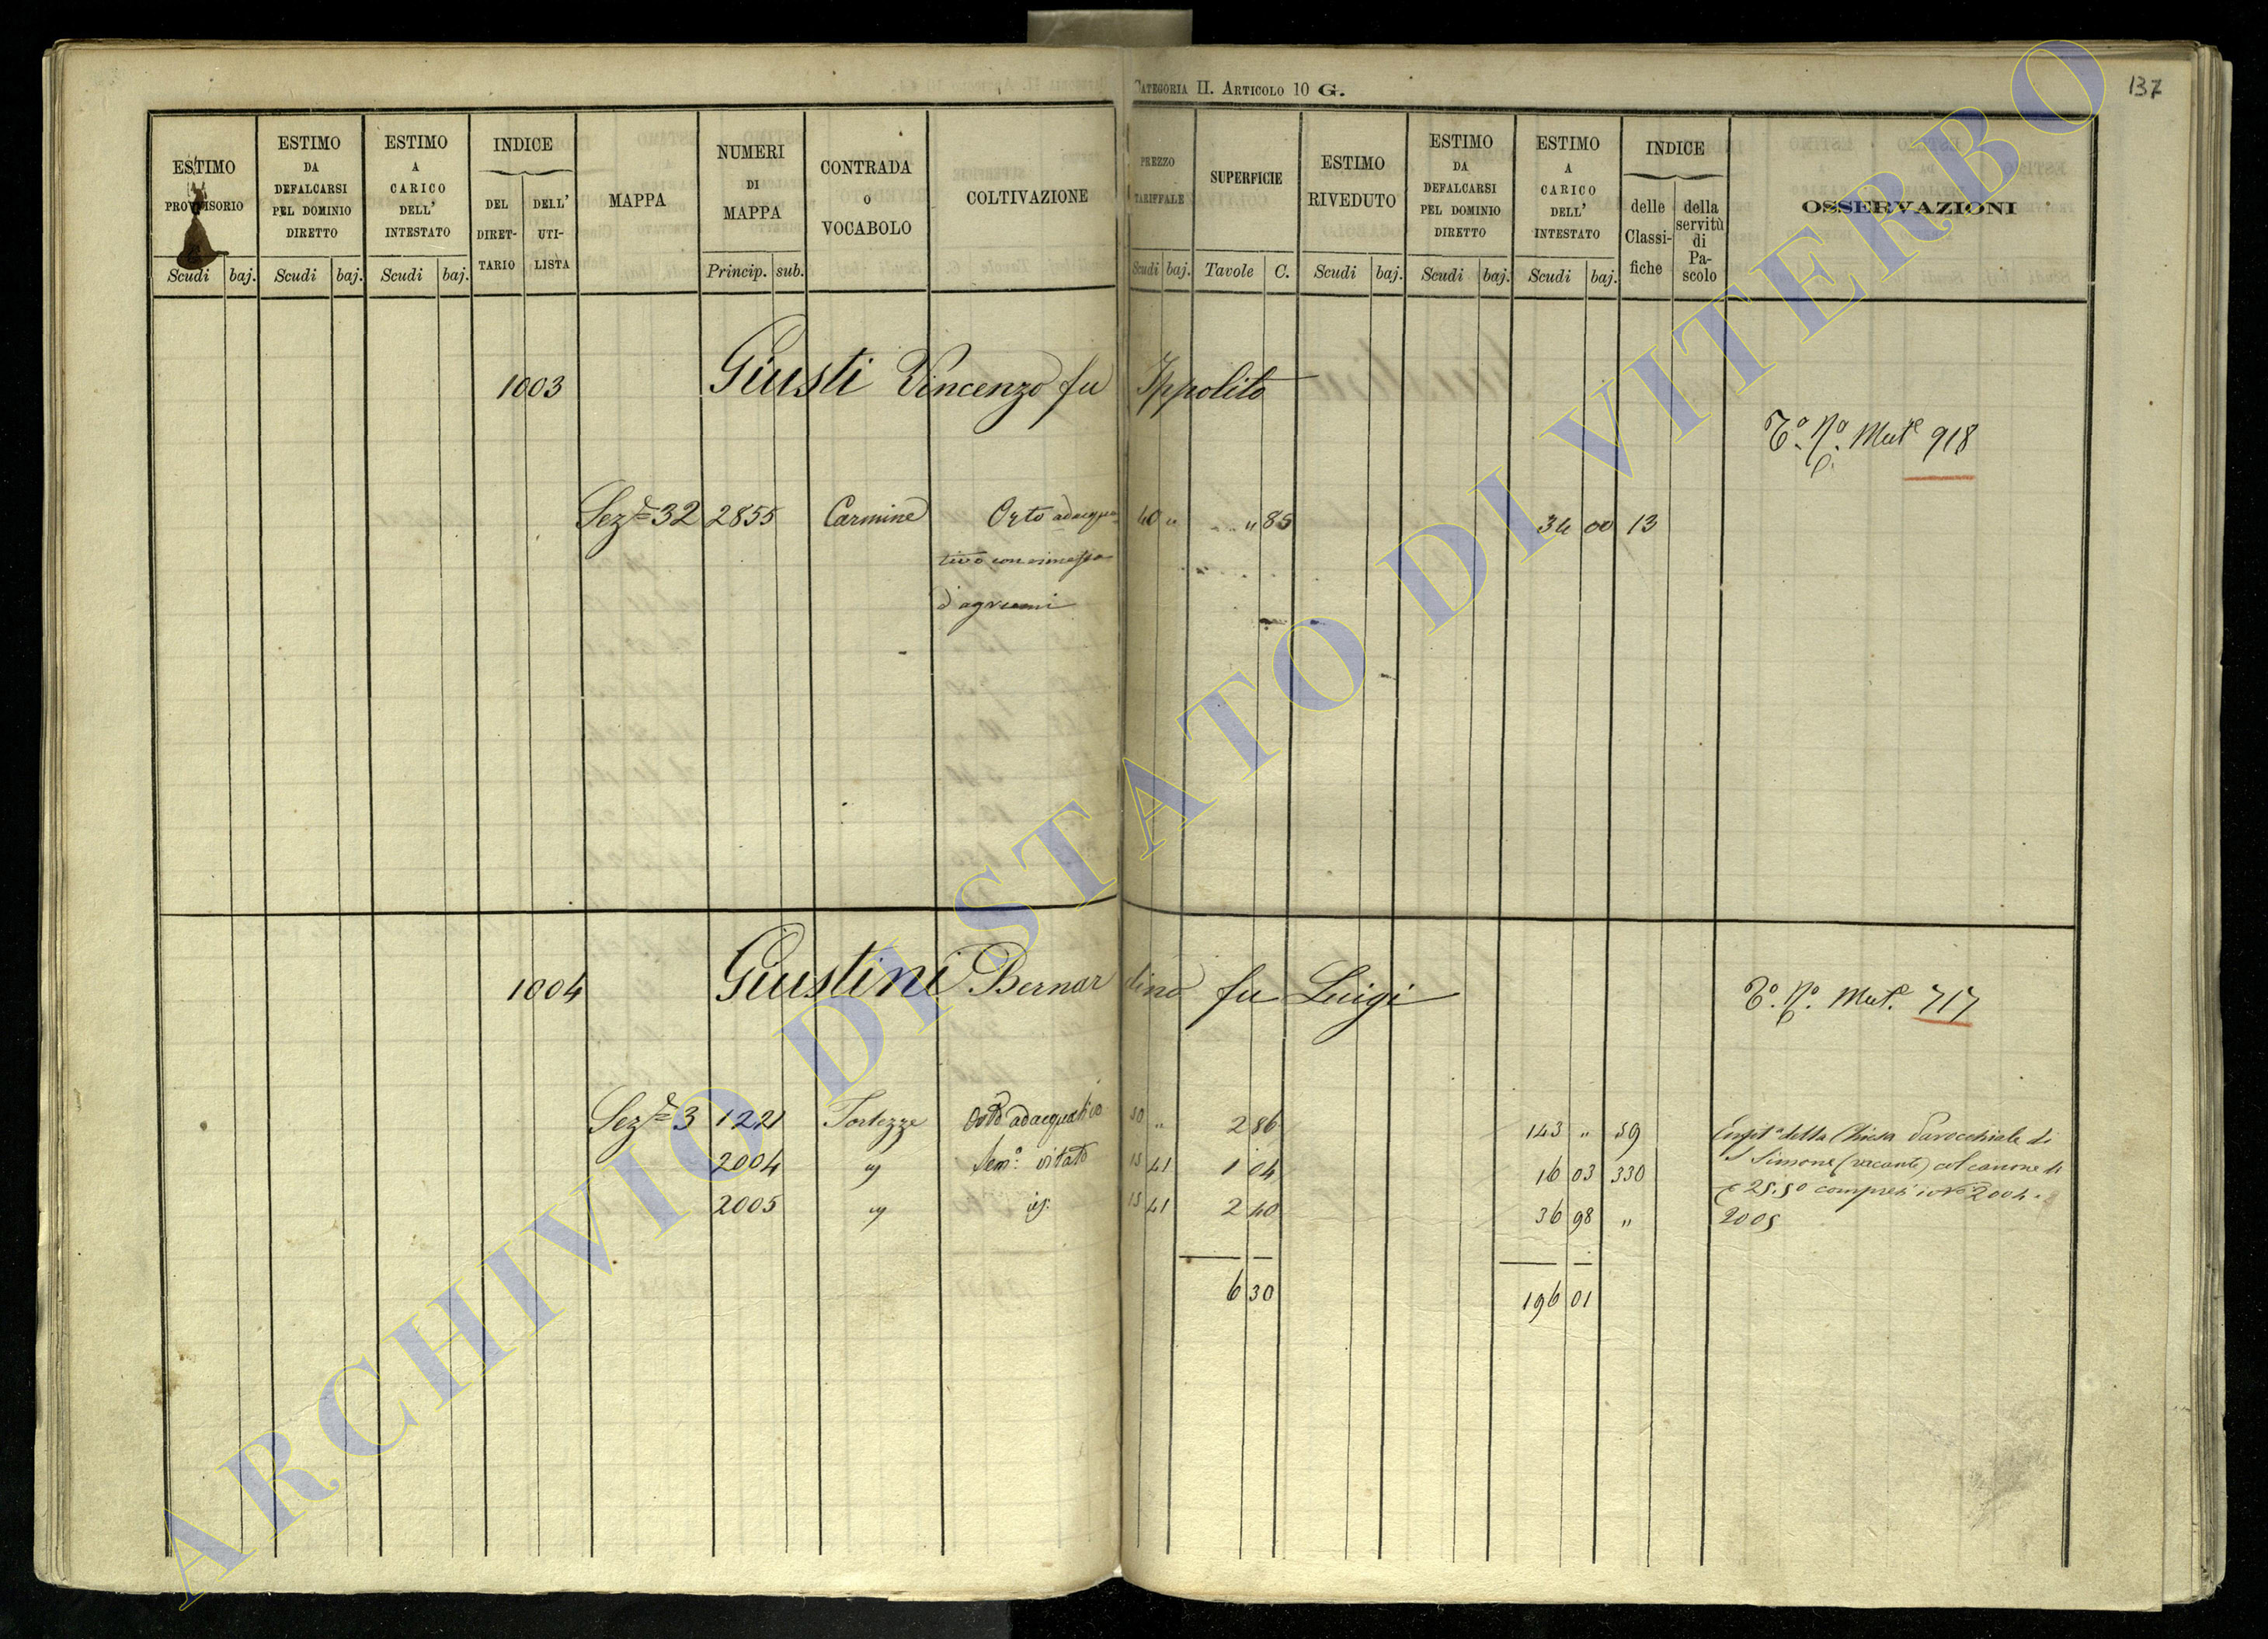 CATEGORIA II. ARTICOLO 10 G.
137
ESTIMO PROVVISORIO
Scudi baj.
ESTIMO DA DEFALCARSI PEL DOMINIO DIRETTO
Scudi baj.
ESTIMO A CARICO DELL' INTESTATO
Scudi baj.
INDICE
DEL DIRET-TARIO
DELL' UTI-LISTA
MAPPA
NUMERI DI MAPPA
Princip. sub.
CONTRADA o VOCABOLO
COLTIVAZIONE
PREZZO TARIFFALE
Scudi baj.
SUPERFICIE
Tavole C.
ESTIMO RIVEDUTO
Scudi baj.
ESTIMO DA DEFALCARSI PEL DOMINIO DIRETTO
Scudi baj.
ESTIMO A CARICO DELL' INTESTATO
Scudi baj.
INDICE
delle Classi-fiche
della servitù di Pa-scolo
OSSERVAZIONI
1003 Giusti Vincenzo fu Ippolito
Mut.e 918
Sez.e 32 2855 Carmine Orto adacqua- 40 " " 85 34 00 13
tivo con rimessa
d'agrumi
1004 Giustini Bernardino fu Luigi
Mut.e 717
Sez.e 3 1221 Fortezze Orto adacquativo 50 " 2 86 143 " 59 Enfit.a della Chiesa Parocchiale di
2004 " Sem.o vitato 15 41 1 04 16 03 330 S Simone (vacante) col canone di
2005 " id. 15 41 2 40 36 98 " 25.50 compresi i Nri 2004 e
2005
6 30 196 01
ARCHIVIO DI STATO DI VITERBO